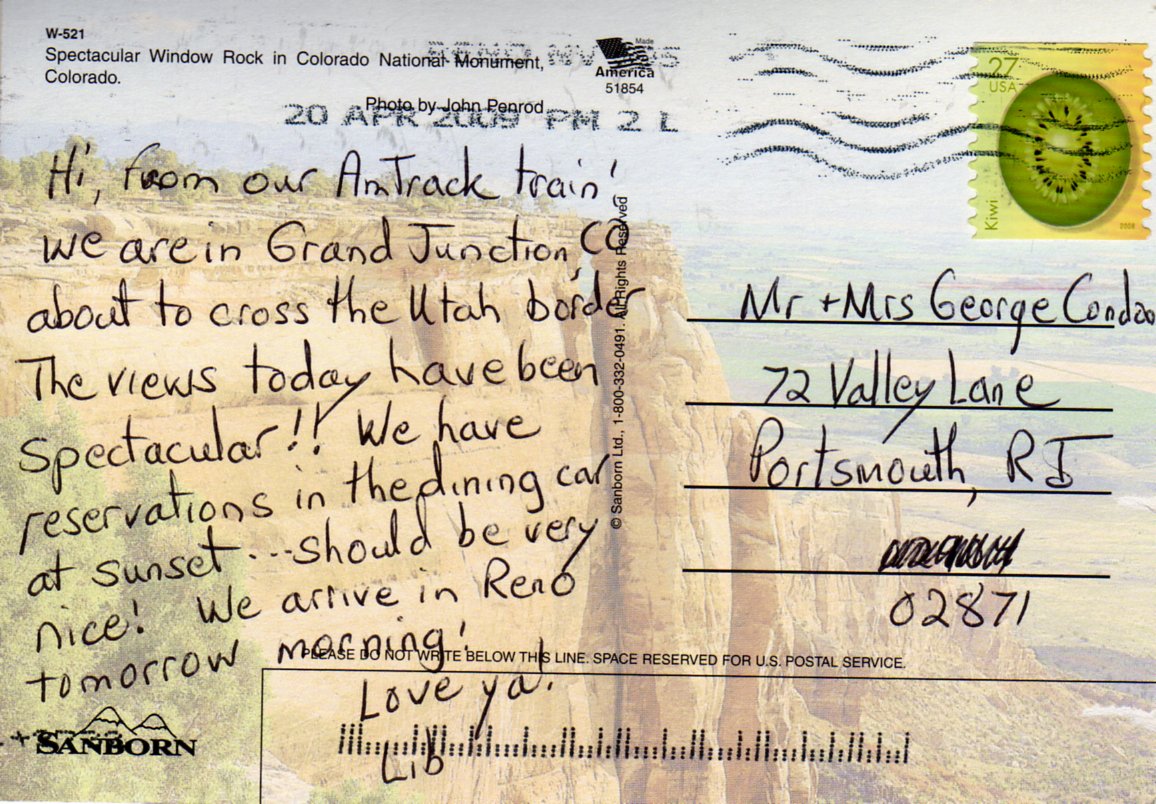 W-521
Spectacular Window Rock in Colorado National Monument,
Colorado.
Photo by John Penrod
Made
America
51854
20 APR 2009 PM 2 L
27
USA
Kiwi
2008
Hi, from our AmTrack train!
We are in Grand Junction, CO
about to cross the Utah border
The views today have been
spectacular!! We have
reservations in the dining car
at sunset...should be very
nice! We arrive in Reno
tomorrow morning!
Love ya!
Lib
© Sanborn Ltd., 1-800-332-0491. All Rights Reserved
Mr + Mrs George
72 Valley Lane
Portsmouth, RI
02871
PLEASE DO NOT WRITE BELOW THIS LINE. SPACE RESERVED FOR U.S. POSTAL SERVICE.
SANBORN